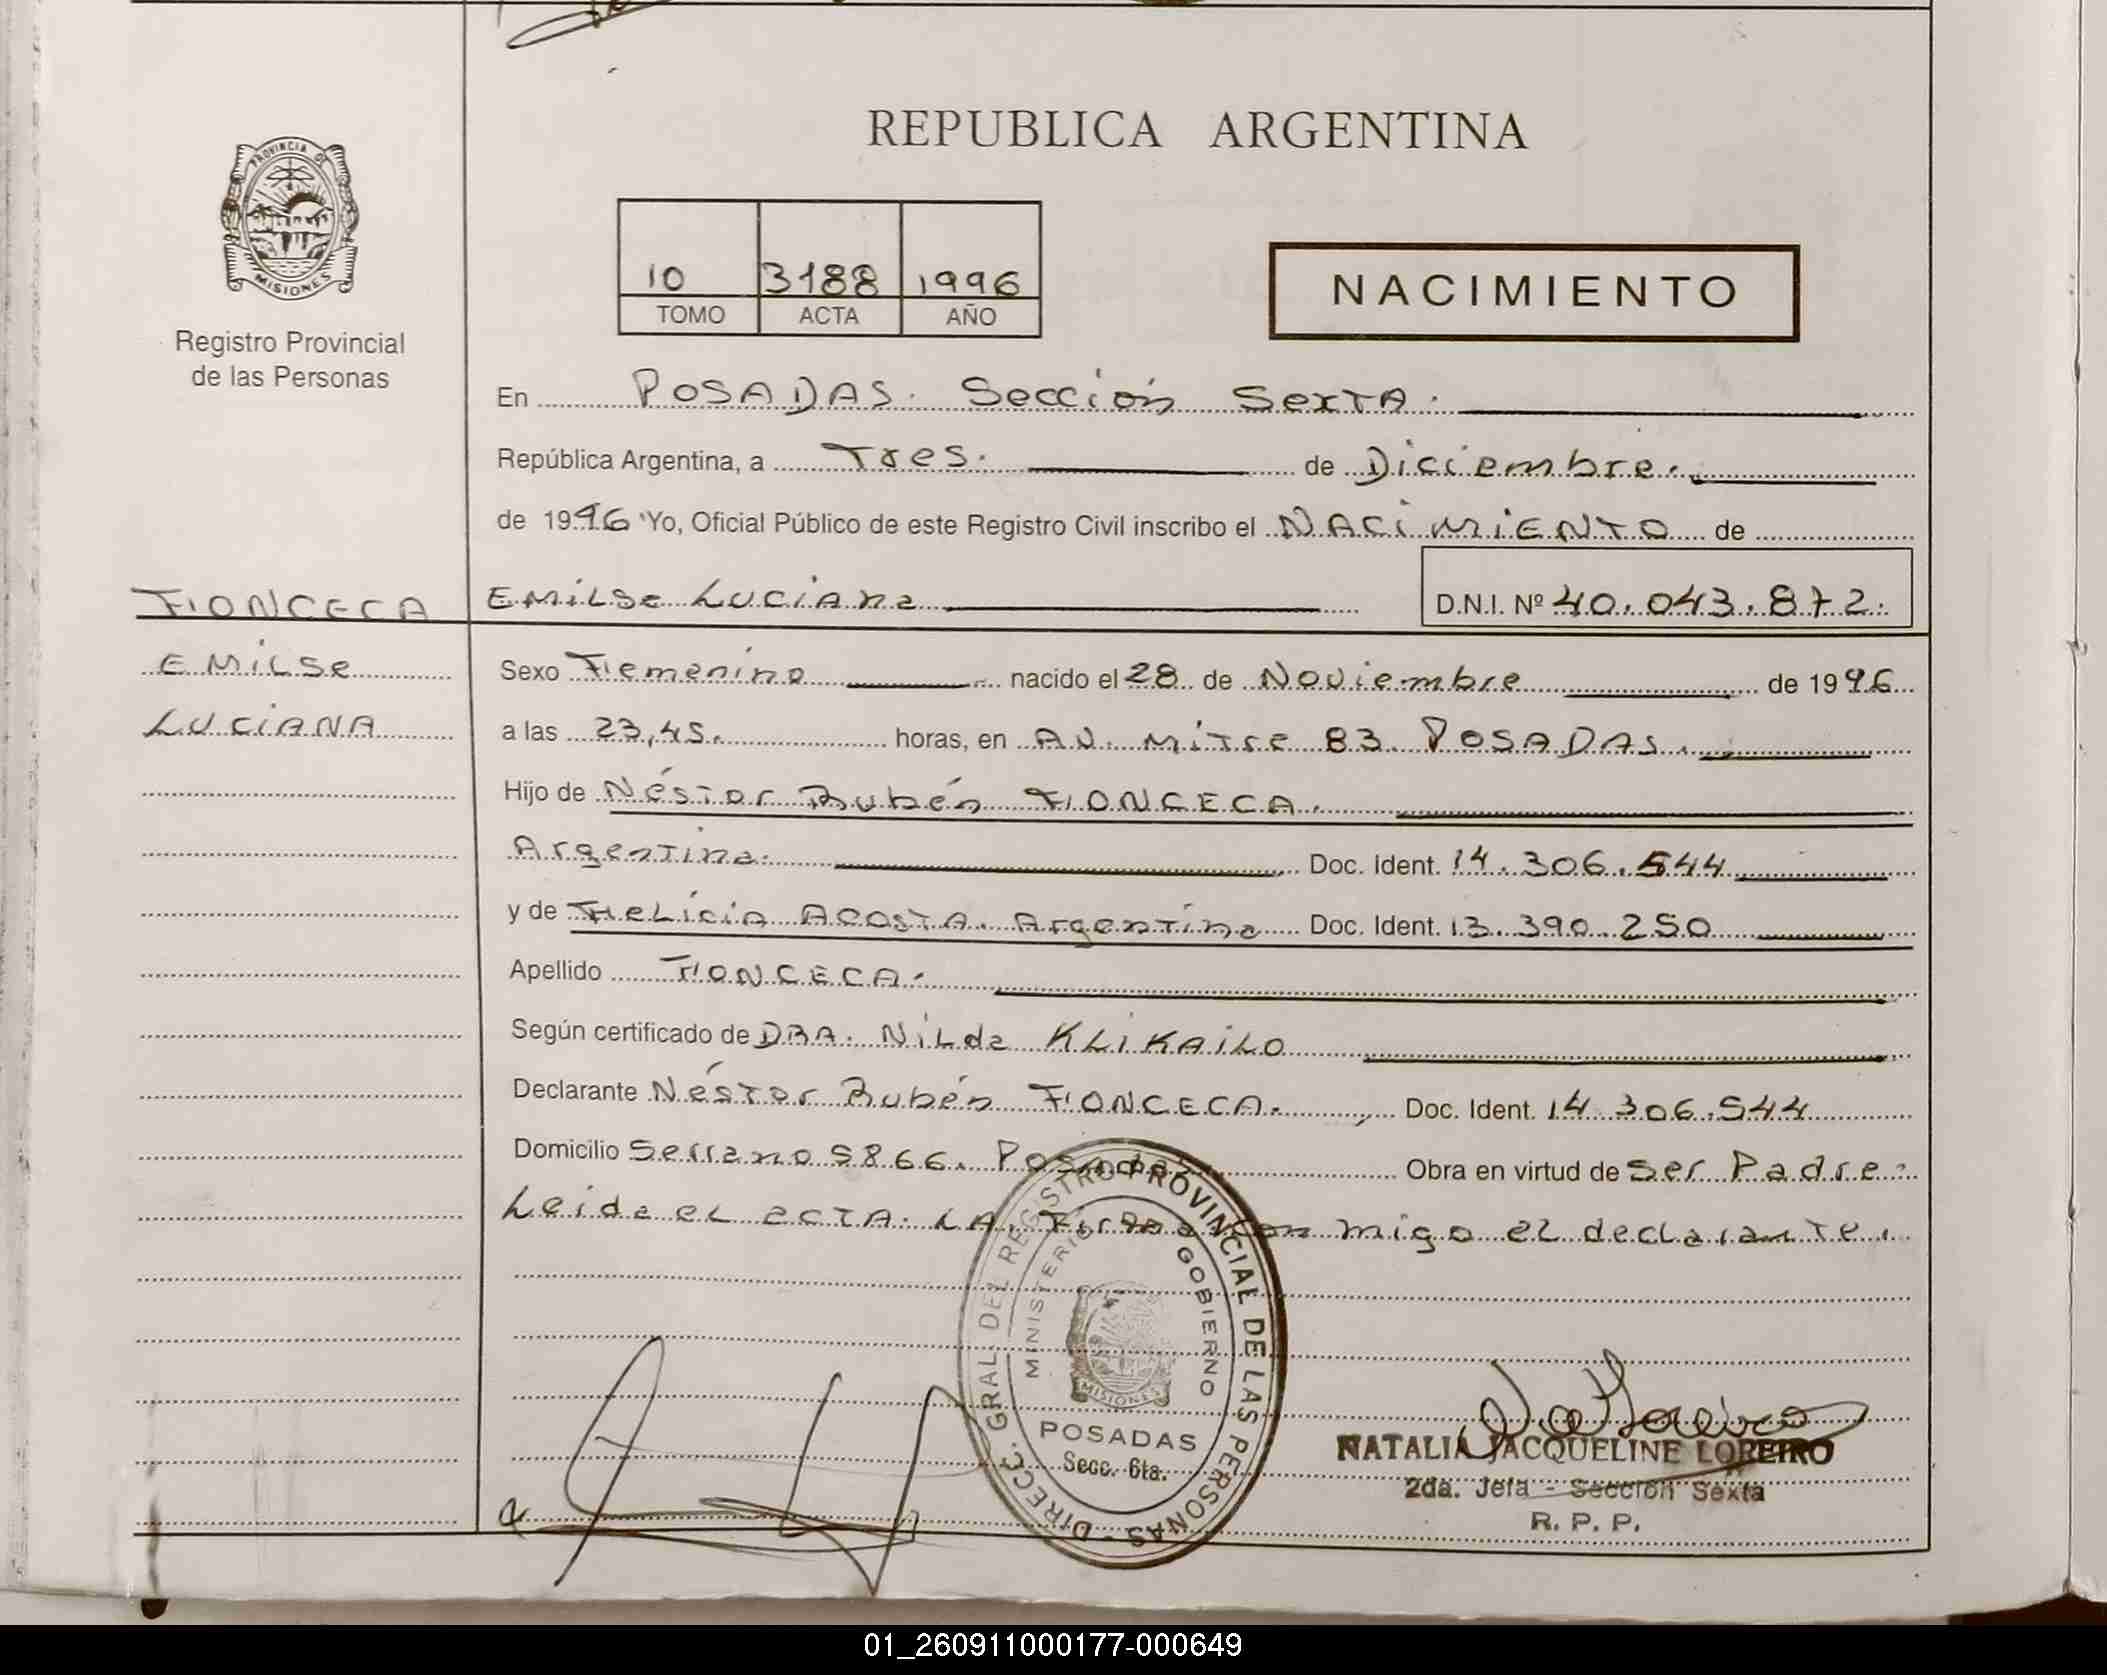 REPUBLICA ARGENTINA
PROVINCIA DE
MISIONES
Registro Provincial
de las Personas
10 3188 1996
TOMO ACTA AÑO
NACIMIENTO
En POSADAS. Sección Sexta.
República Argentina, a Tres. de Diciembre.
de 1996 Yo, Oficial Público de este Registro Civil inscribo el NACIMIENTO de
FONCECA EMILSE LUCIANA D.N.I. Nº 40.043.872.
EMILSE
LUCIANA
Sexo Femenino nacido el 28 de Noviembre de 1996
a las 23,45. horas, en AV. Mitre 83. POSADAS.
Hijo de Néstor Rubén FONCECA.
Argentina. Doc. Ident. 14.306.544
y de Felicia ACOSTA. Argentina Doc. Ident. 13.390.250
Apellido FONCECA.
Según certificado de DRA. Nilda KLIKAILO
Declarante Néstor Rubén FONCECA. Doc. Ident. 14.306.544
Domicilio Serrano 5866. Posadas. Obra en virtud de Ser Padre.
Leida el acta. LA. Firma conmigo el declarante.
DIRECC. GRAL. DEL REGISTRO PROVINCIAL DE LAS PERSONAS -
MINISTERIO GOBIERNO
MISIONES
POSADAS
Secc. 6ta.
NATALIA JACQUELINE LOREIRO
2da. Jefa - Sección Sexta
R. P. P.
01_260911000177-000649